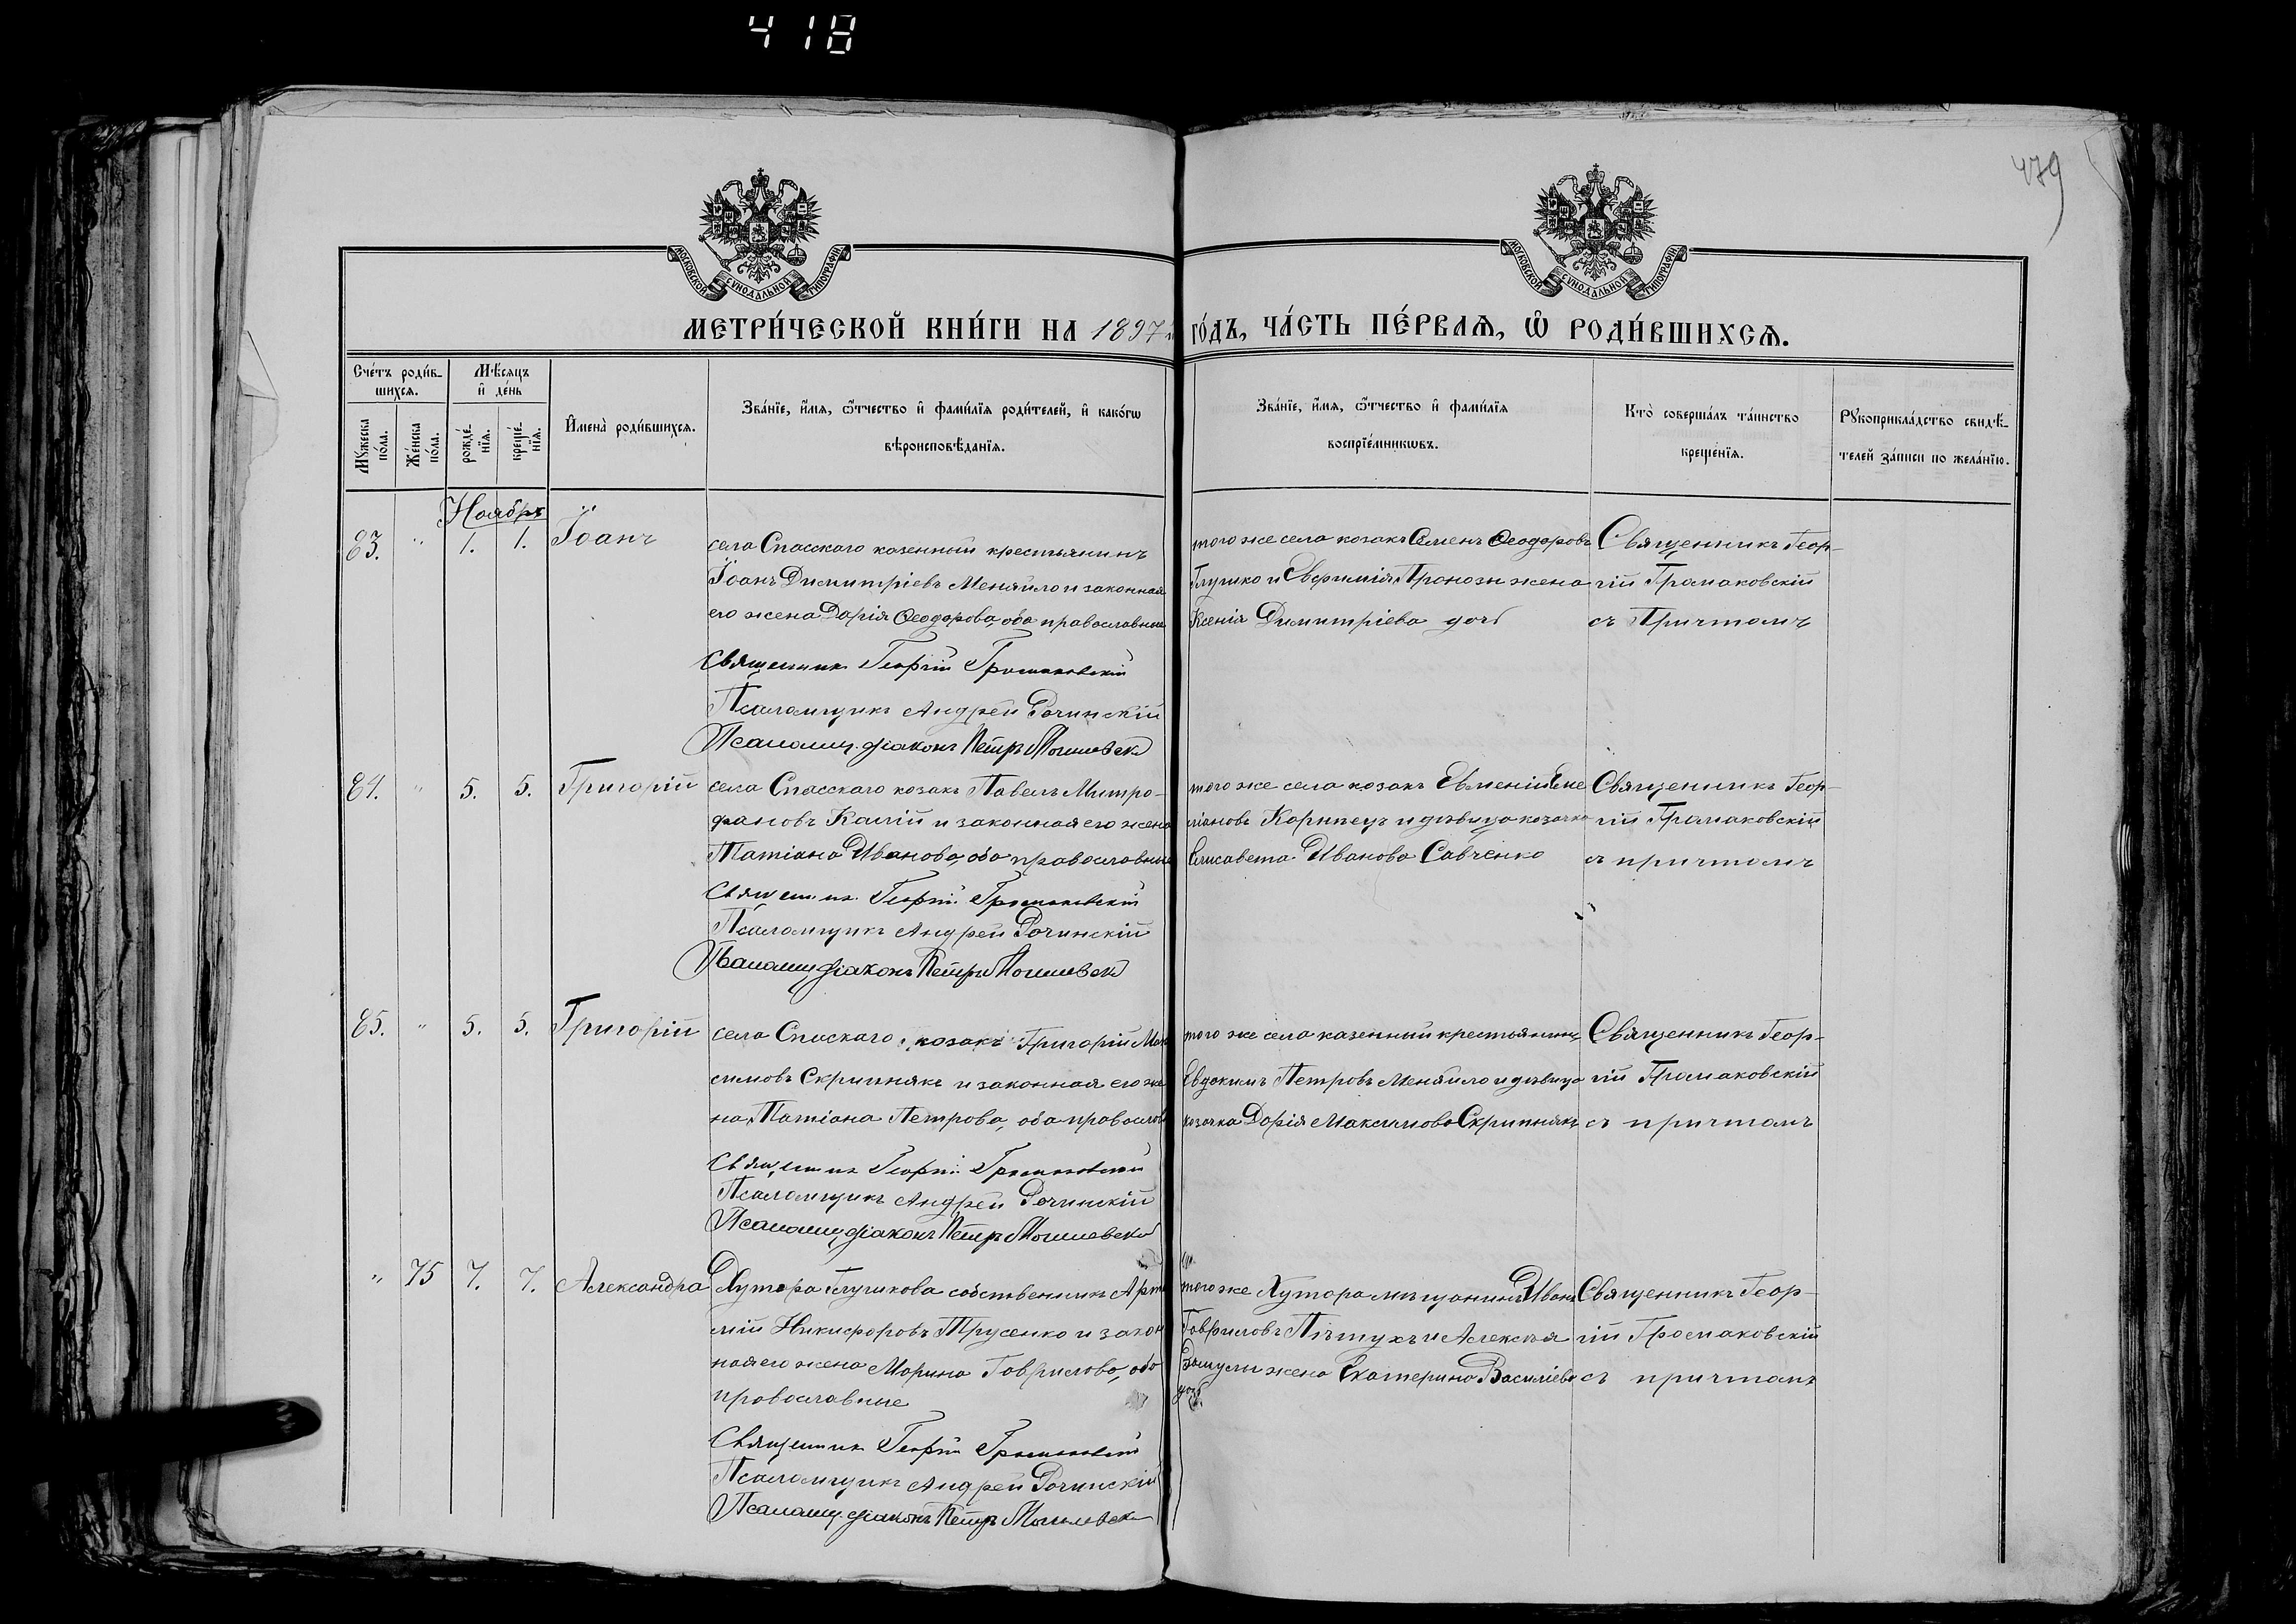 418
479
МОСКОВСКОЙ СѴНОДАЛЬНОЙ ТИПОГРАФІИ
МОСКОВСКОЙ СѴНОДАЛЬНОЙ ТИПОГРАФІИ
МЕТРИ́ЧЕСКОЙ КНИ́ГИ НА 1897 ГО́ДЪ, ЧА́СТЬ ПЕ́РВАѦ, Ѡ҆ РОДИ́ВШИХСѦ.
Сче́тъ роди́в-
шихсѧ.
Мѣ́сѧцъ
и҆ де́нь
Мꙋ́жеска по́ла.
Же́нска по́ла.
рожде́-
нїѧ.
креще́-
нїѧ.
И҆мена̀ роди́вшихсѧ.
Зва́нїе, и҆́мѧ, ѻ҆́тчество и҆ фами́лїѧ роди́телей, и҆ како́гѡ
вѣроисповѣ́данїѧ.
Зва́нїе, и҆́мѧ, ѻ҆́тчество и҆ фами́лїѧ
воспрїе́мникѡвъ.
Кто̀ соверша́лъ та́инство
креще́нїѧ.
Рꙋкоприкла́дство свидѣ́-
телей за́писи по жела́нїю.
Ноябрь
83. " 1. 1. Іоанъ
села Спасскаго казенный крестьянинъ
Іоанъ Димитріевъ Меняйло и законная
его жена Дарія Ѳеодорова, оба православные
Священникъ Георгій Громаковскій
Псаломщикъ Андрей Рочинскій
Псаломщ. діаконъ Петръ Могилевск
того же села козакъ Семенъ Ѳеодоровъ
Глушко и Евфимія жена
Ксенія Димитріева дочь
Священникъ Геор-
гій Громаковскій
съ Причтомъ
84. " 5. 5. Григорій
села Спасскаго козакъ Павелъ Митро-
фановъ Калій и законная его жена
Татіана Иванова, оба православные
Священникъ Георгій Громаковскій
Псаломщикъ Андрей Рочинскій
Псаломщ. діаконъ Петръ Могилевск
того же села козакъ Евменій Еме
ліановъ Корнпецъ и дѣвица козачка
Елисавета Иванова Савченко
Священникъ Геор-
гій Громаковскій
съ причтомъ
85. " 5. 5. Григорій
села Спаскаго, козакъ Григорій Мак
симовъ Скрипнякъ и законная его же
на, Татіана Петрова, оба православ
Священникъ Георгій Громаковскій
Псаломщикъ Андрей Рочинскій
Псаломщ. діаконъ Петръ Могилевск
того же села казенный крестьянинъ
Евдокимъ Петровъ Меняйло и дѣвица
козачка Дарія Максимова Скрипнякъ
Священникъ Геор-
гій Громаковскій
съ причтомъ
" 75 7. 7. Александра
Хутора Глушкова собственникъ Арте
мій Никифоровъ Трусенко и закон
ная его жена Марина Гаврилова, оба
православные
Священникъ Георгій Громаковскій
Псаломщикъ Андрей Рочинскій
Псаломщ. діаконъ Петръ Могилевск
того же Хутора мѣщанинъ Иванъ
Гавриловъ Пѣтухъ и Алексѣя
жена Екатерина Василіева
дочь
Священникъ Геор-
гій Громаковскій
съ причтомъ